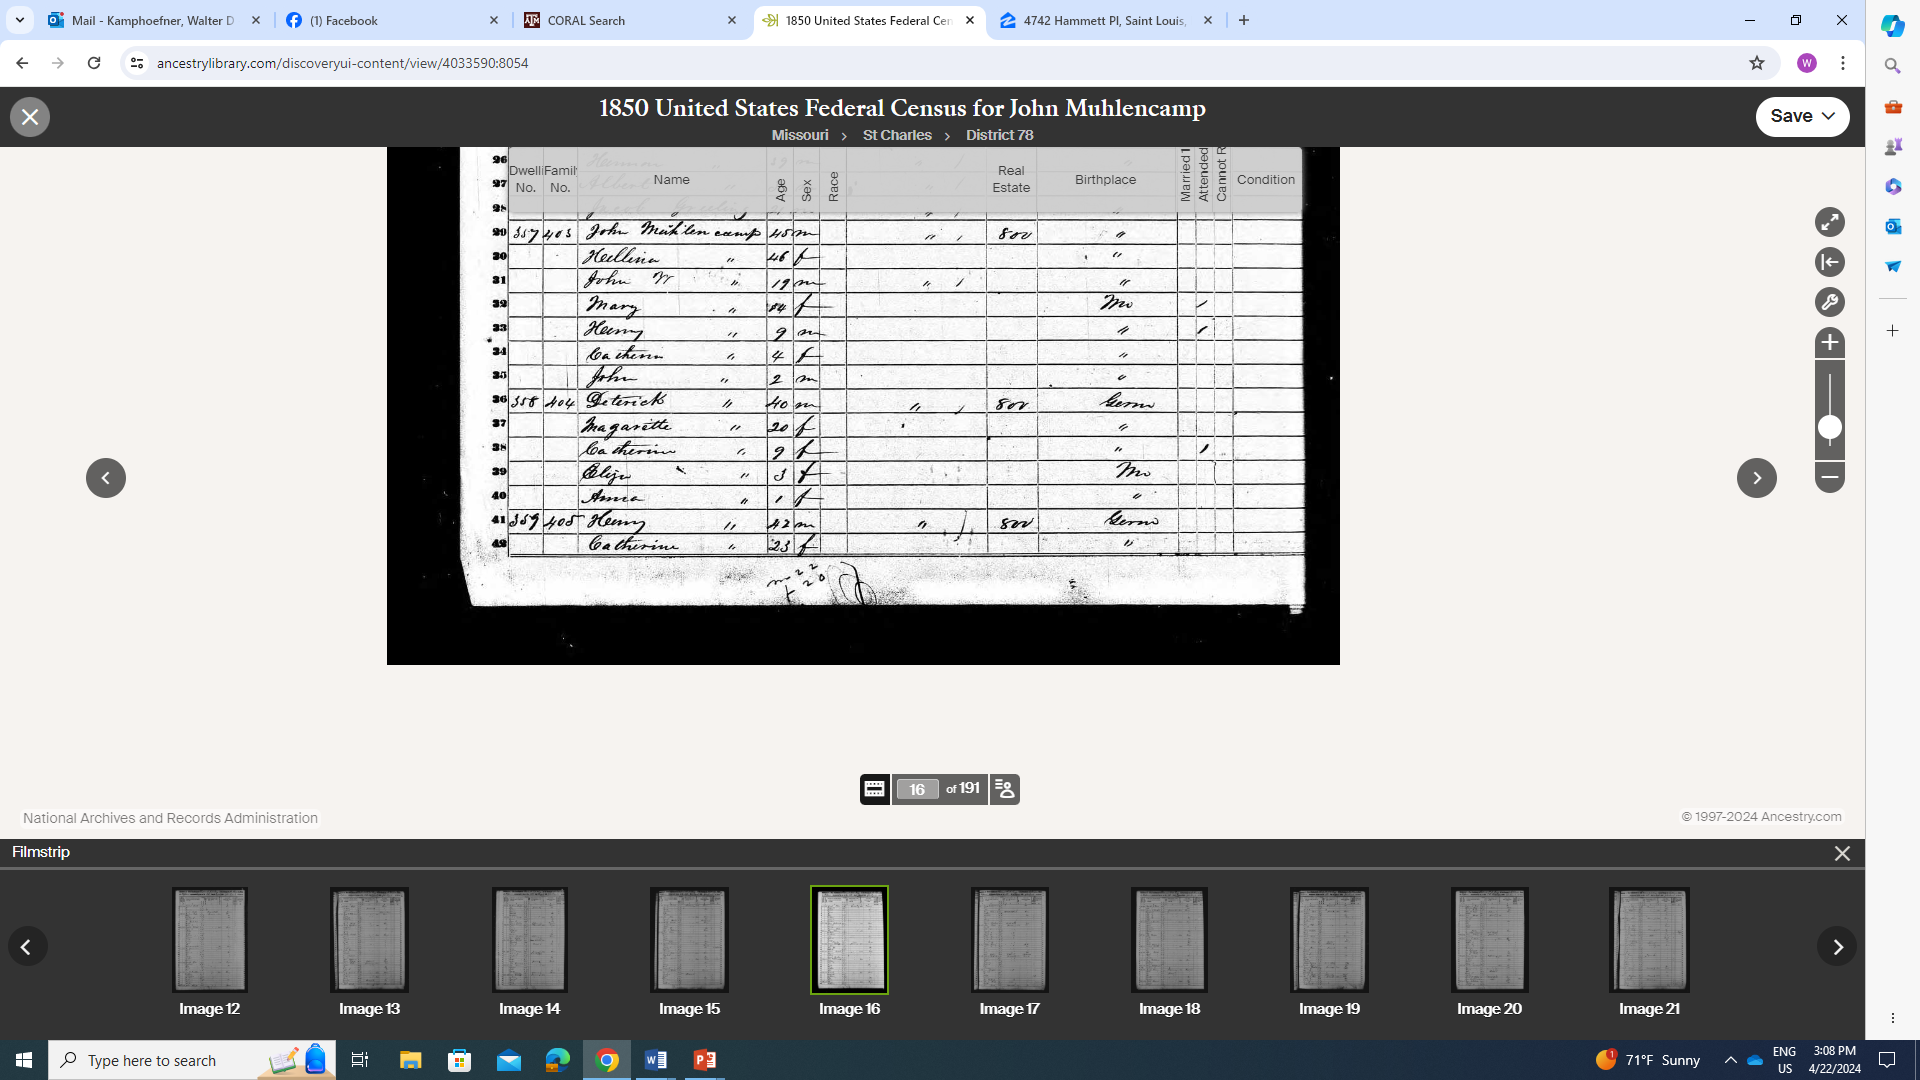 Mail - Kamphoefner, Walter D
(1) Facebook
CORAL Search
1850 United States Federal Cen
4742 Hammett Pl, Saint Louis,
ancestrylibrary.com/discoveryui-content/view/4033590:8054
W
1850 United States Federal Census for John Muhlencamp
Missouri > St Charles > District 78
Save
Dwelli No. Famil No. Name Age Sex Race Real Estate Birthplace Married 1 Attended Cannot R Condition
26
27
28
29 357 403 John Muhlencamp 45 m " 800 "
30 Hellina " 46 f "
31 John W " 19 m " "
32 Mary " 14 f Mo /
33 Henry " 9 m " /
34 Catherin " 4 f "
35 John " 2 m "
36 358 404 Deterick " 40 m " / 800 Germ
37 Magarette " 20 f "
38 Catherine " 9 f " /
39 Eliza " 3 f Mo
40 Anna " 1 f "
41 359 405 Henry " 42 m " 800 Germ
42 Catherine " 23 f "
m 22
f 20
16 of 191
National Archives and Records Administration
© 1997-2024 Ancestry.com
Filmstrip
Image 12
Image 13
Image 14
Image 15
Image 16
Image 17
Image 18
Image 19
Image 20
Image 21
Type here to search
1
71°F Sunny
ENG
US
3:08 PM
4/22/2024